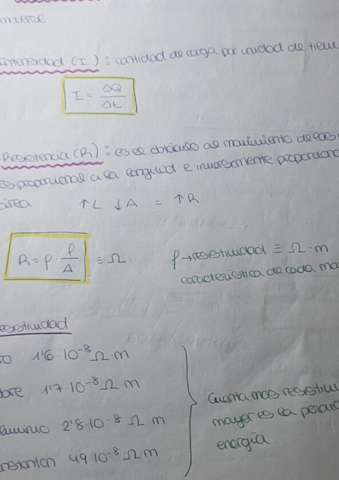 Intensidad (I): cantidad de carga por unidad de tiem
I = ΔQ / Δt
Resistencia (R): es el obstáculo al movimiento de las
es proporcional a la longitud e inversamente proporciona
área ↑L ↓A = ↑R
R = ρ ρ/A ≡ Ω ρ → resistividad ≡ Ω·m
característica de cada ma
resistividad
1'6·10⁻⁸ Ω m
bre 1'7·10⁻⁸ Ω m
luminio 2'8·10⁻⁸ Ω m
onstantan 49·10⁻⁸ Ω m
Cuanta mas resistivi
mayor es la perdi
energía